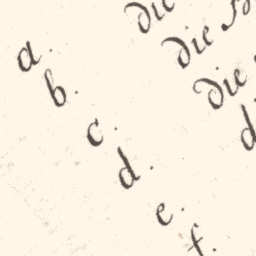 a. die
b. die
c. die
d. d
e.
f.